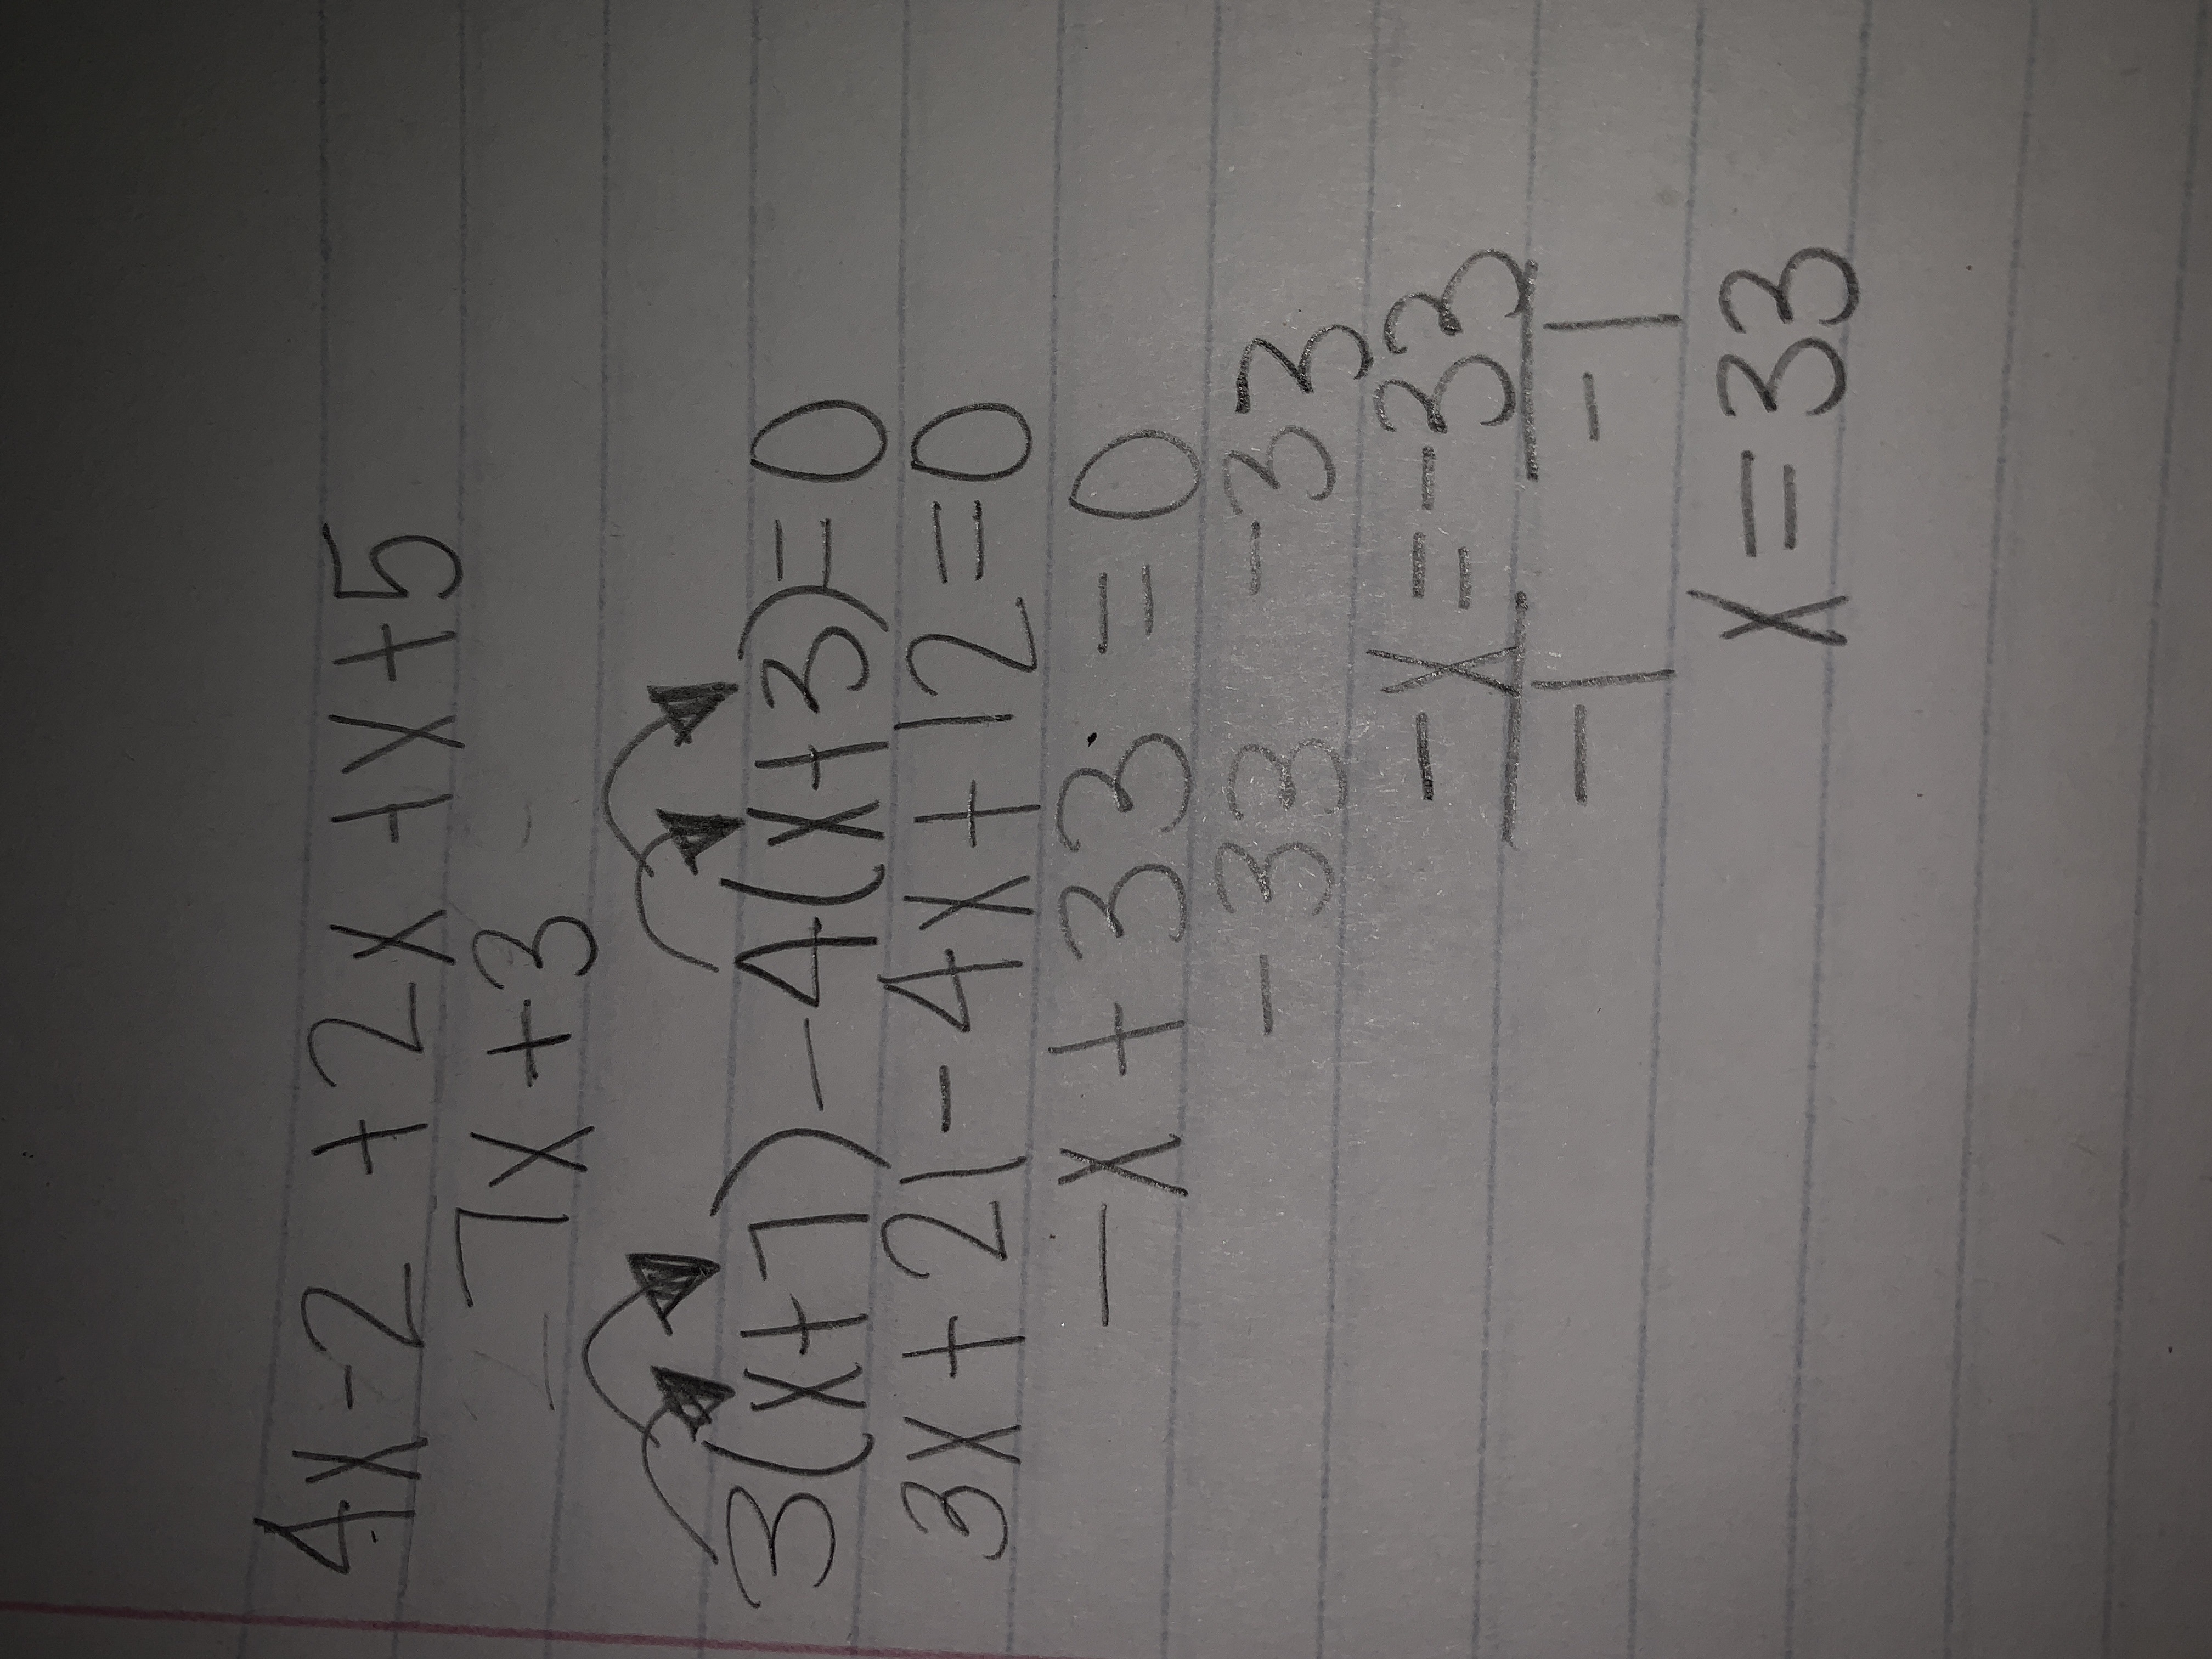 4x-2 +2x +1x+5
7x+3
3(x+7)-4(x+3)=0
3x+21-4x+12=0
-x+33=0
-33 -33
-x=-33
-1 -1
x=33